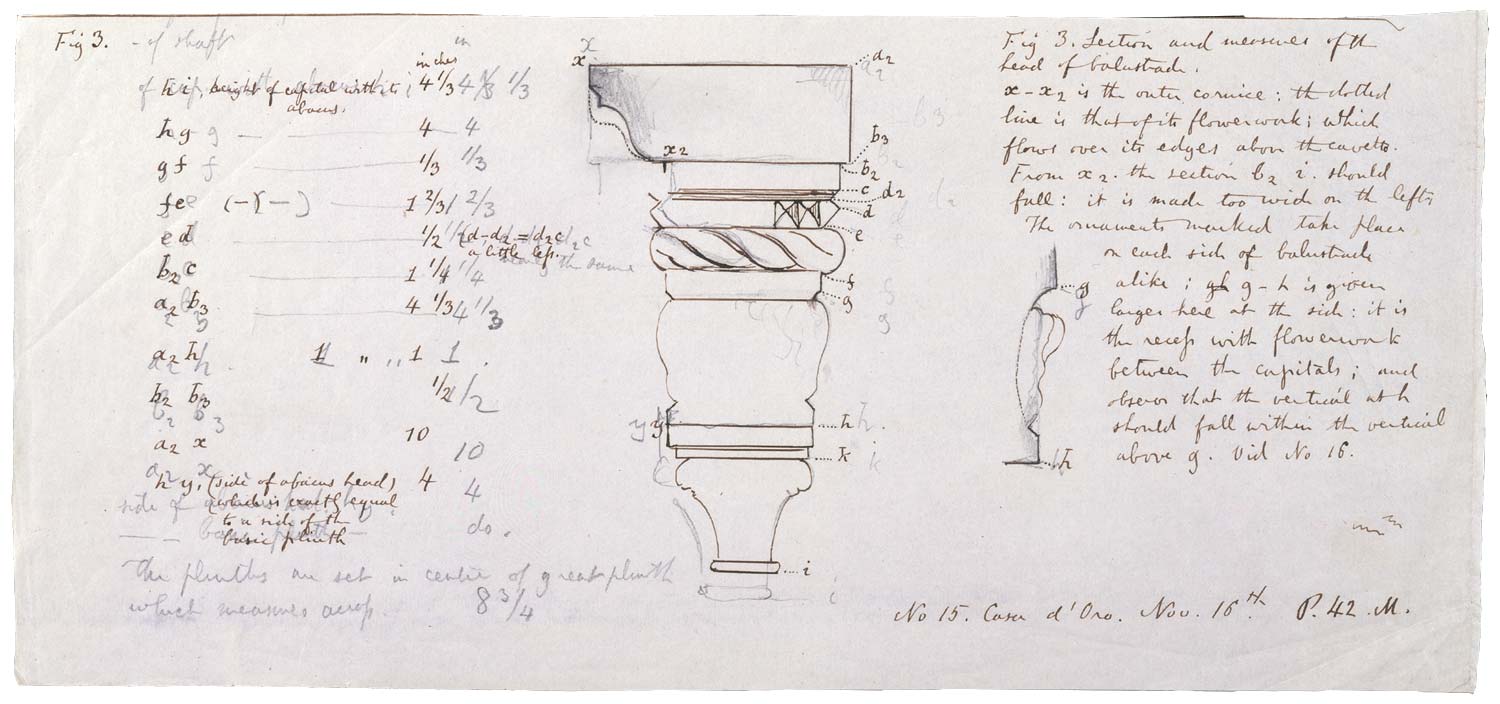 Fig 3.
- of shaft
in
inches
h i, height of capital with its abacus. 4 1/3 4 1/3
h g g 4 4
g f f 1/3 1/3
f e e (-)(-) 1 2/3 2/3
e d 1/2 (d-d2 = d2 c
a little less.
the same
b2 c 1 1/4 1/4
a2 b3 4 1/3 4 1/3
a2 h 1 " " 1 1.
b2 b3 1/2 1/2
b2 b3
a2 x 10 10
a2 x
h y, (side of abacus head) 4 4
side of
which is exactly equal
to a side of the do.
basic plinth
The plinths are set in centre of great plinth
which measures across. 8 3/4
x
x
d2
a2
b3
x2
b3
b2
b2
c
d2
d2
d
d
e
e
f
f
g
g
y y
h h.
k k
i
i
Fig 3. Section and measures of th
head of balustrade.
x-x2 is the outer cornice: th dotted
line is that of its flowerwork; which
flows over its edges above th cavetto.
From x2. the section b2 i. should
fall: it is made too wide on th left.
The ornaments marked take place
on each side of balustrade
alike; gh g-h is given
larger here at the side: it is
the recess with flowerwork
between the capitals; and
observe that the vertical at h
should fall within the vertical
above g. Vid No 16.
g
g
h
No 15. Casa d'Oro. Nov. 16th. P. 42. M.